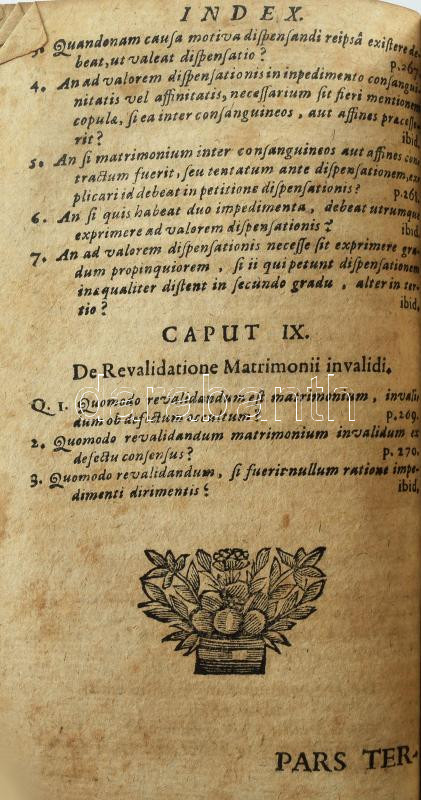 INDEX.
3. Quandonam causa motiva dispensandi reipsâ existere de-
beat, ut valeat dispensatio? p.267.
4. An ad valorem dispensationis in inpedimento consangui-
nitatis vel affinitatis, necessarium sit fieri mentionem
copulæ, si ea inter consanguineos, aut affines præcesse-
rit? ibid.
5. An si matrimonium inter consanguineos aut affines con-
tractum fuerit, seu tentatum ante dispensationem, ex-
plicari id debeat in petitione dispensationis? p.268.
6. An si quis habeat duo impedimenta, debeat utrumque
exprimere ad valorem dispensationis? ibid.
7. An ad valorem dispensationis necesse sit exprimere gra-
dum propinquiorem, si ii qui petunt dispensationem
inæqualiter distent in secundo gradu, alter in ter-
tio? ibid.
CAPUT IX.
De Revalidatione Matrimonii invalidi.
Q. 1. Quomodo revalidandum est matrimonium, invali-
dum ob defectum occultum? p.269.
2. Quomodo revalidandum matrimonium invalidum ex
defectu consensus? p.270.
3. Quomodo revalidandum, si fuerit nullum ratione impe-
dimenti dirimentis? ibid.
PARS TER-
darabanth